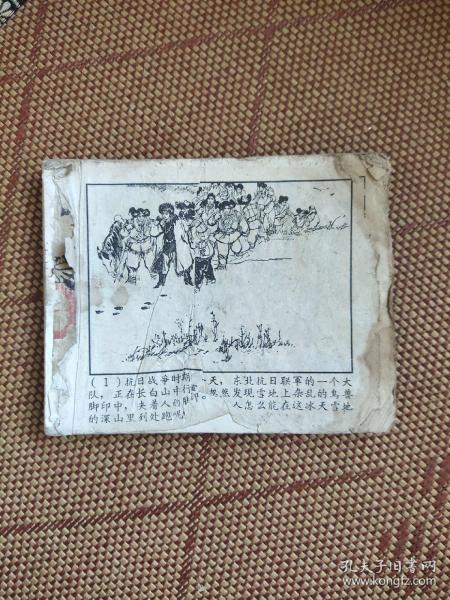 (1)抗日战争时期一天,东北抗日联军的一个大
队,正在长白山中行军。忽然发现雪地上杂乱的鸟兽
脚印中,夹着人的脚印。人怎么能在这冰天雪地
的深山里到处跑呢
孔夫子旧书网
www.kongfz.com